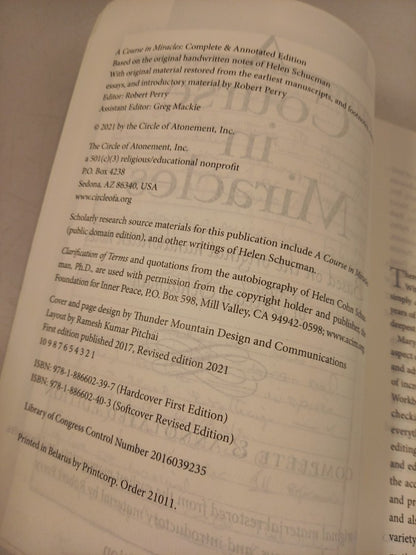 A Course in Miracles: Complete & Annotated Edition
Based on the original handwritten notes of Helen Schucman
With original material restored from the earliest manuscripts, and footnotes,
essays, and introductory material by Robert Perry
Editor: Robert Perry
Assistant Editor: Greg Mackie
© 2021 by the Circle of Atonement, Inc.
The Circle of Atonement, Inc.
a 501(c)(3) religious/educational nonprofit
P.O. Box 4238
Sedona, AZ 86340, USA
www.circleofa.org
Scholarly research source materials for this publication include A Course in Miracles
(public domain edition), and other writings of Helen Schucman.
Clarification of Terms and quotations from the autobiography of Helen Cohn Schuc-
man, Ph.D., are used with permission from the copyright holder and publisher, the
Foundation for Inner Peace, P.O. Box 598, Mill Valley, CA 94942-0598; www.acim.org
Cover and page design by Thunder Mountain Design and Communications
Layout by Ramesh Kumar Pitchai
First edition published 2017, Revised edition 2021
10 9 8 7 6 5 4 3 2 1
ISBN: 978-1-886602-39-7 (Hardcover First Edition)
ISBN: 978-1-886602-40-3 (Softcover Revised Edition)
Library of Congress Control Number 2016039235
Printed in Belarus by Printcorp. Order 21011.
simply
years of
Many
aspect
and ad
of inc
Workb
everyt
editing
and
the acc
and pr
and al
variety